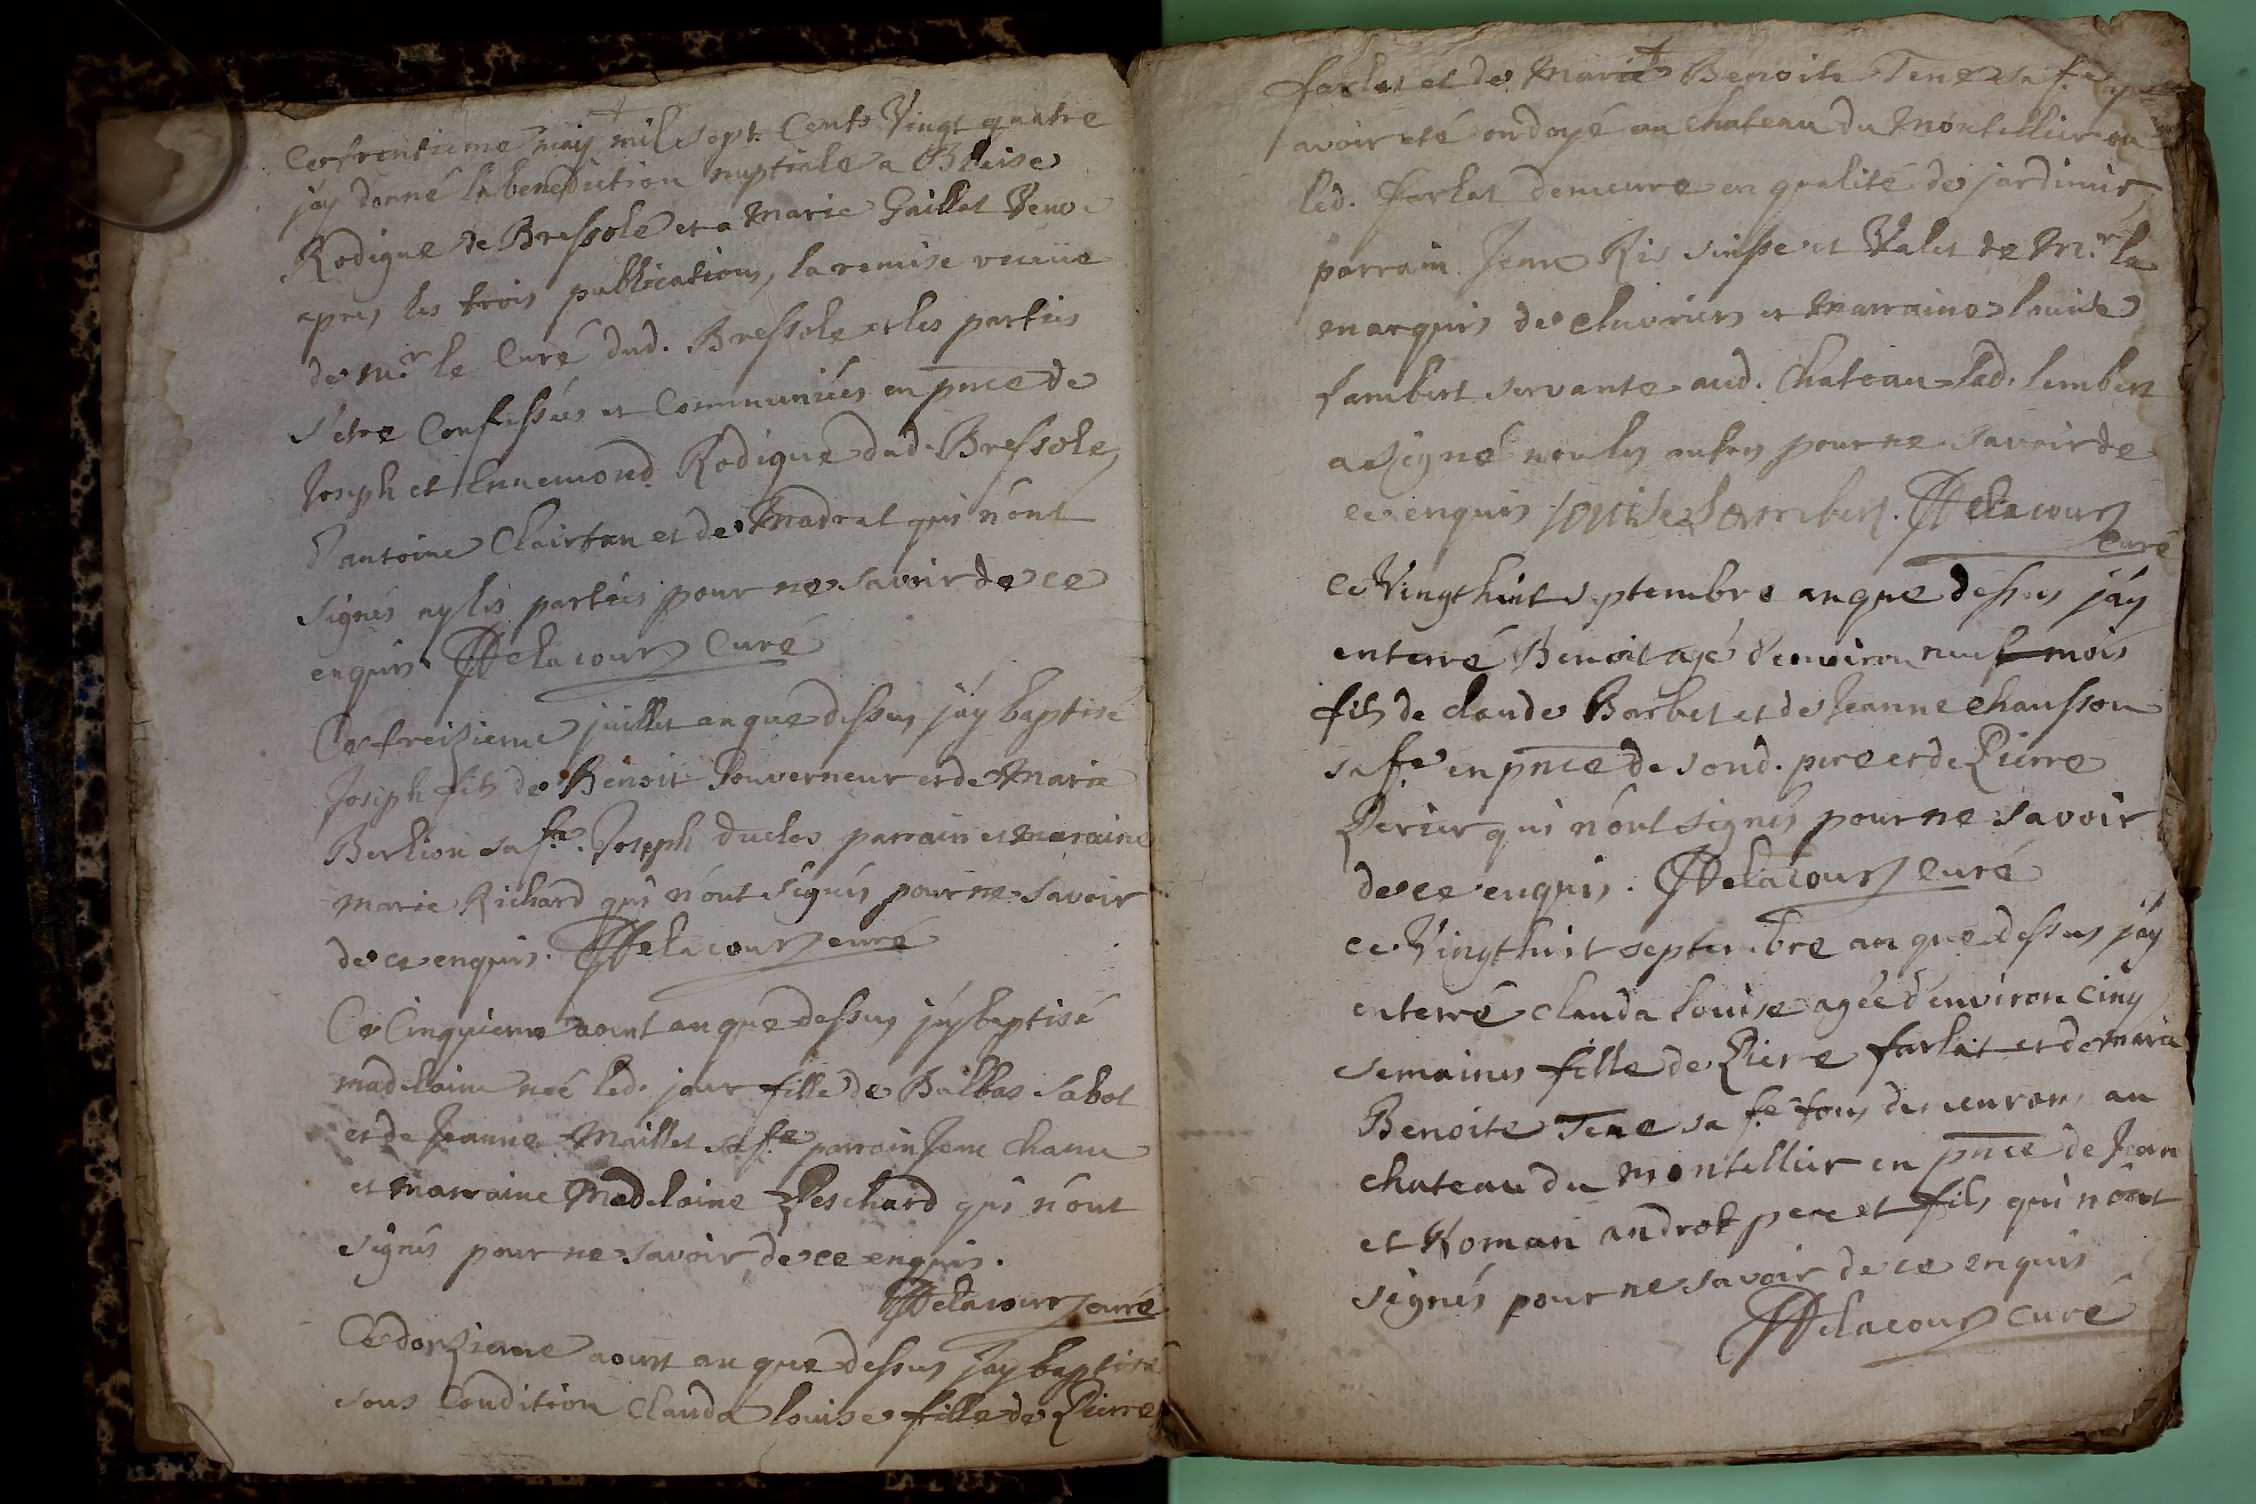 Ce trentieme may mil sept Cents Vingt quatre
j'ay donné la benediction nuptiale a Blaise
Rodigue de Bressole et a Marie Gaillat Veuve
apres les trois publications, la remise receüe
de Mr. le Curé dud. Bressole et les parties
s'etre Confessées et Communiées en pnce de
Joseph et Ennemond Rodigue dud. Bressole,
d'antoine Clairtan et de Madrat qui n'ont
signés ny les parties pour ne savoir de ce
enquis. Delacour Curé
Ce treizieme juillet an que dessus j'ay baptisé
Joseph fils de Benoit Gouverneur et de Marie
Berlion sa fe. Joseph duclos parrain et maraine
marie Richard qui n'ont signés pour ne savoir
de ce enquis. Delacour curé
Ce Cinquieme aout an que dessus j'ay baptisé
madelaine née led. jour fille de Balbas Sabot
et de Jeanne Maillet sa fe parrain Jean chanu
et marraine Madelaine Peschard qui n'ont
signés pour ne savoir de ce enquis.
Delacour curé
Ce douzieme aoust an que dessus j'ay baptisé
sous Condition Clauda louise fille de Pierre
farlat et de Marie Benoite Tene sa fe apres
avoir eté ondoyé au chateau du Montellier ou
led. farlat demeure en qualité de jardinier,
parrain Jean Ris suisse et Valet de Mr. le
marquis de cluvriers et marraine louise
Lambert servante aud. Chateau lad. lembert
a signé non les autres pour ne savoir de
ce enquis louise Lembert. Delacour
curé
Ce Vingthuit septembre an que dessus j'ay
enterré Benoit agé d'environ neuf mois
fils de claude Barbet et de Jeanne chausson
sa fe en pnce de sond. pere et de Pierre
Perier qui n'ont signés pour ne savoir
de ce enquis. Delacour curé
ce Vingthuit septembre an que dessus j'ay
enterré clauda louise agée d'environ cinq
semaines fille de Pierre farlat et de Marie
Benoite Tene sa fe tous demeurans au
chateau du montellier en pnce de Jean
et Roman androt pere et fils qui n'ont
signés pour ne savoir de ce enquis
Delacour curé